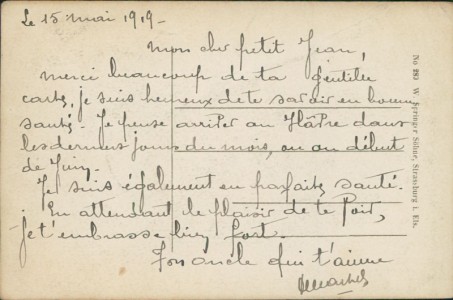 Le 15 mai 1919-
mon cher petit Jean,
merci beaucoup de ta gentille
carte, je suis heureux de te savoir en bonne
santé. Je pense arriver au Hâvre dans
les derniers jours du mois, ou au début
de Juin.
Je suis également en parfaite santé.
En attendant le plaisir de te voir,
je t'embrasse bien fort.
Ton oncle qui t'aime
No 280 W. Springer Söhne, Strassburg i. Els.